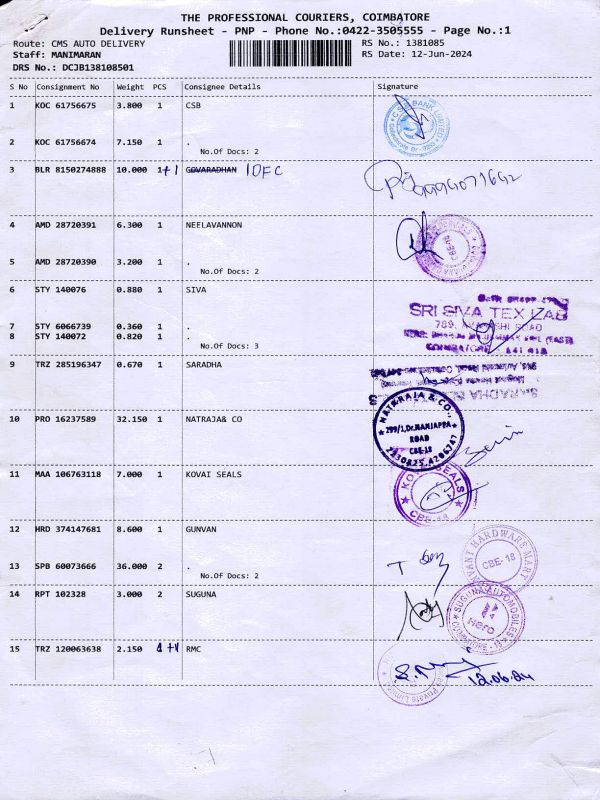 THE PROFESSIONAL COURIERS, COIMBATORE
Delivery Runsheet - PNP - Phone No.:0422-3505555 - Page No.:1
Route: CMS AUTO DELIVERY RS No.: 1381085
Staff: MANIMARAN RS Date: 12-Jun-2024
DRS No.: DCJB138108501
S No Consignment No Weight PCS Consignee Details Signature
1 KOC 61756675 3.800 1 CSB
2 KOC 61756674 7.150 1 .
No.Of Docs: 2
3 BLR 8150274888 10.000 1+1 GOVARADHAN IDFC
4 AMD 28720391 6.300 1 NEELAVANNON
5 AMD 28720390 3.200 1 .
No.Of Docs: 2
6 STY 140076 0.880 1 SIVA
SRI SIVA TEX LAB
7 STY 6066739 0.360 1 .
8 STY 140072 0.820 1 .
No.Of Docs: 3
COIMBATORE 641 018
9 TRZ 285196347 0.670 1 SARADHA
NATARAJA & CO.,
10 PRO 16237589 32.150 1 NATRAJA& CO
299/1, Dr. NANJAPPA
ROAD
CBE-18
2230825, 4206747
11 MAA 106763118 7.000 1 KOVAI SEALS
KOVAI SEALS
CBE-18
12 HRD 374147681 8.600 1 GUNVAN
HARDWARE MART
CBE-18
13 SPB 60073666 36.000 2 .
No.Of Docs: 2
14 RPT 102328 3.000 2 SUGUNA
SUGUNA AUTOMOBILES
Hero
COIMBATORE - 18
15 TRZ 120063638 2.150 RMC
12.06.24